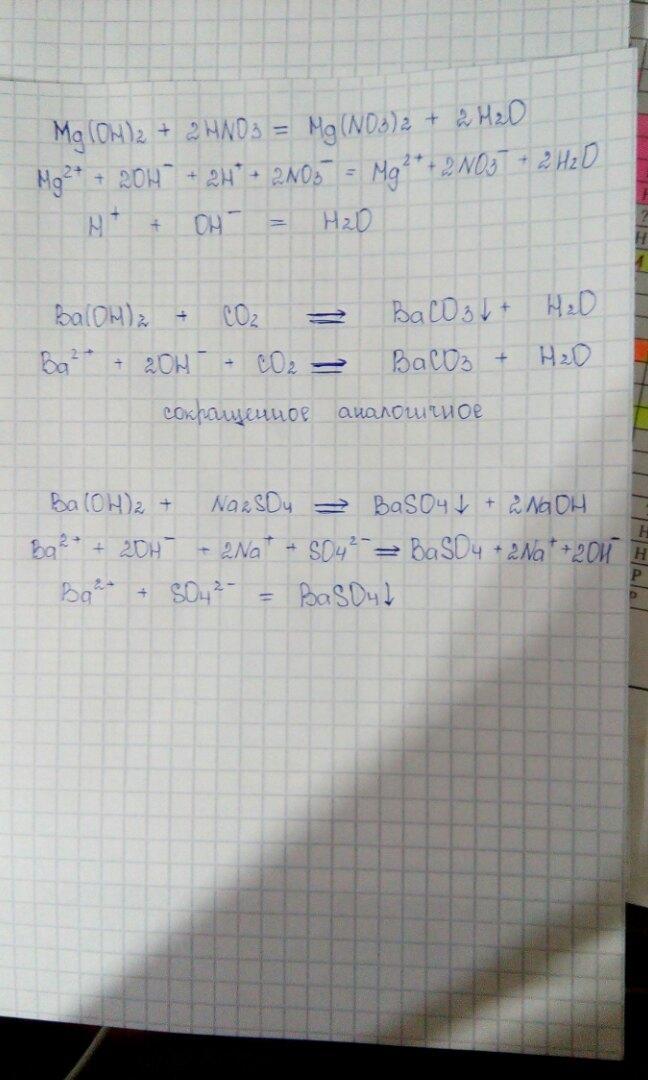 Mg(OH)2 + 2HNO3 = Mg(NO3)2 + 2H2O
Mg²⁺ + 2OH⁻ + 2H⁺ + 2NO3⁻ = Mg²⁺ + 2NO3⁻ + 2H2O
H⁺ + OH⁻ = H2O
Ba(OH)2 + CO2 ⇒ BaCO3↓ + H2O
Ba²⁺ + 2OH⁻ + CO2 ⇒ BaCO3 + H2O
сокращенное аналогичное
Ba(OH)2 + Na2SO4 ⇒ BaSO4↓ + 2NaOH
Ba²⁺ + 2OH⁻ + 2Na⁺ + SO4²⁻ ⇒ BaSO4 + 2Na⁺ + 2OH⁻
Ba²⁺ + SO4²⁻ = BaSO4↓